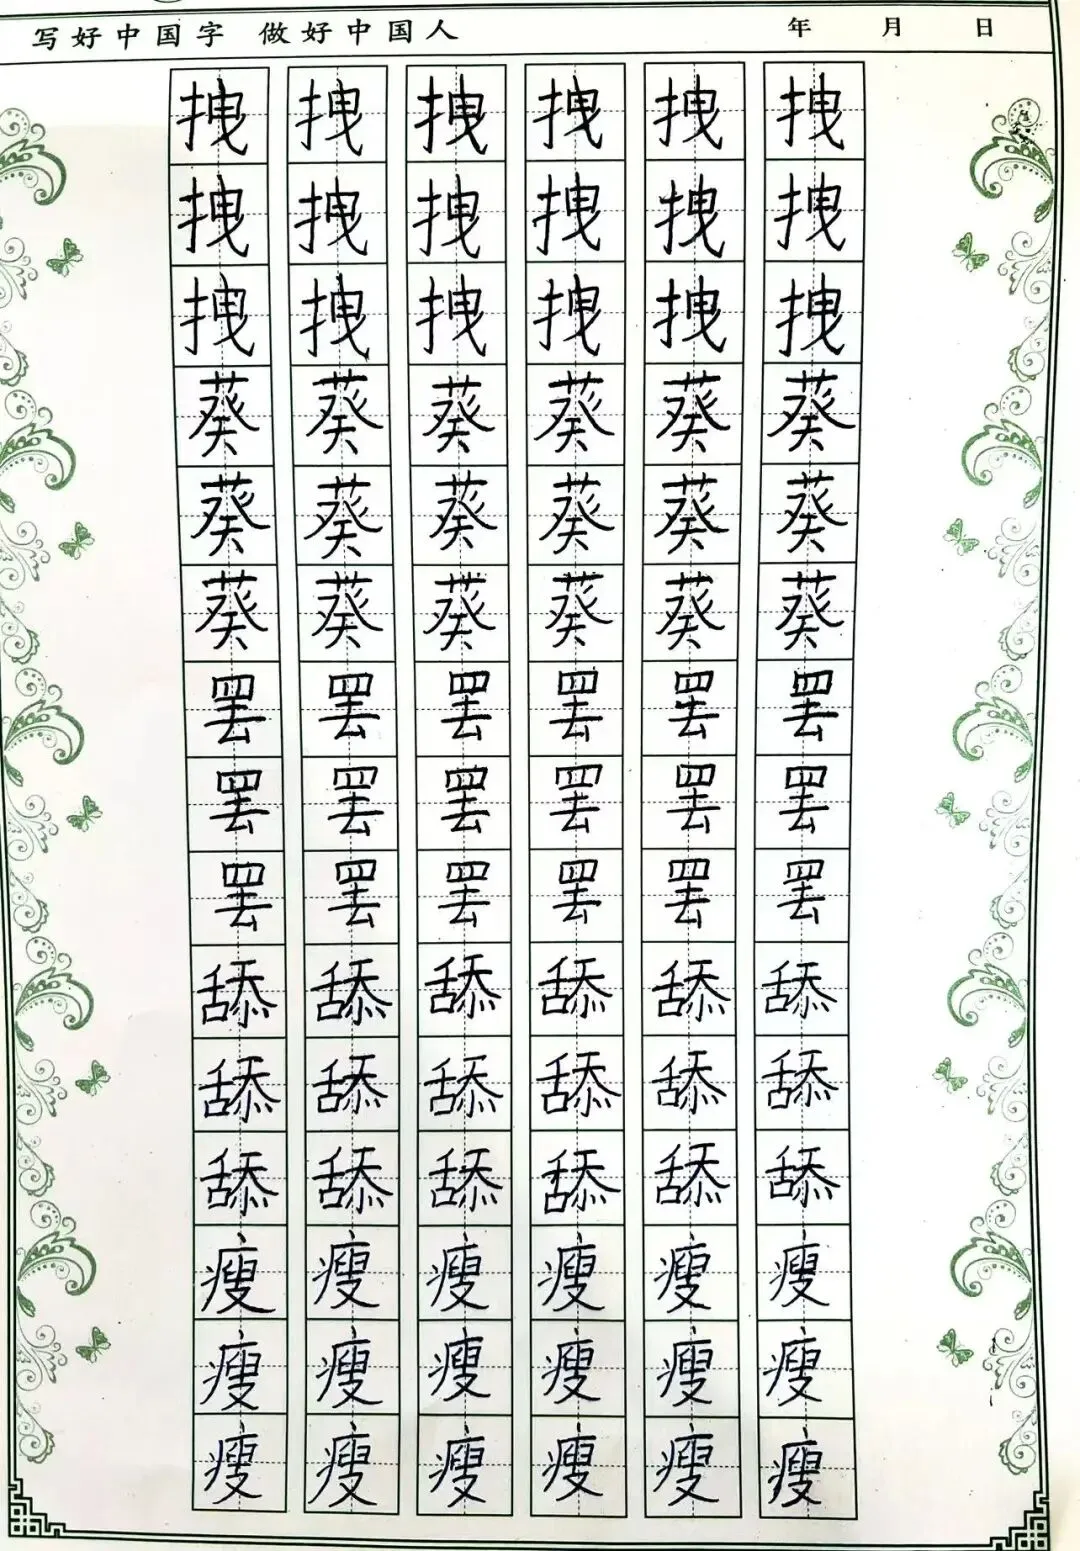 写好中国字 做好中国人 年 月 日
拽 拽 拽 拽 拽 拽
拽 拽 拽 拽 拽 拽
拽 拽 拽 拽 拽 拽
葵 葵 葵 葵 葵 葵
葵 葵 葵 葵 葵 葵
葵 葵 葵 葵 葵 葵
罢 罢 罢 罢 罢 罢
罢 罢 罢 罢 罢 罢
罢 罢 罢 罢 罢 罢
舔 舔 舔 舔 舔 舔
舔 舔 舔 舔 舔 舔
舔 舔 舔 舔 舔 舔
瘦 瘦 瘦 瘦 瘦 瘦
瘦 瘦 瘦 瘦 瘦 瘦
瘦 瘦 瘦 瘦 瘦 瘦